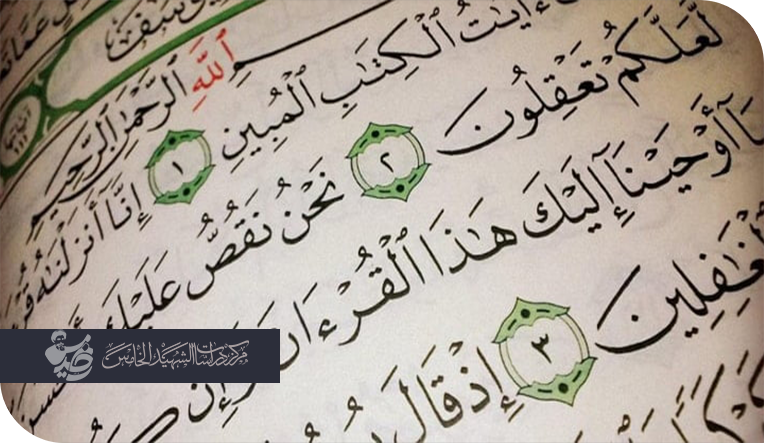 يوسف
ٱللَّهِ ٱلرَّحْمَٰنِ ٱلرَّحِيمِ
ءَايَٰتُ ٱلْكِتَٰبِ ٱلْمُبِينِ ١ إِنَّآ أَنزَلْنَٰهُ
لَّعَلَّكُمْ تَعْقِلُونَ ٢ نَحْنُ نَقُصُّ عَلَيْكَ
أَوْحَيْنَآ إِلَيْكَ هَٰذَا ٱلْقُرْءَانَ وَإِن
ٱلْغَٰفِلِينَ ٣ إِذْ قَالَ
مركز دراسات الشهيد الخامس